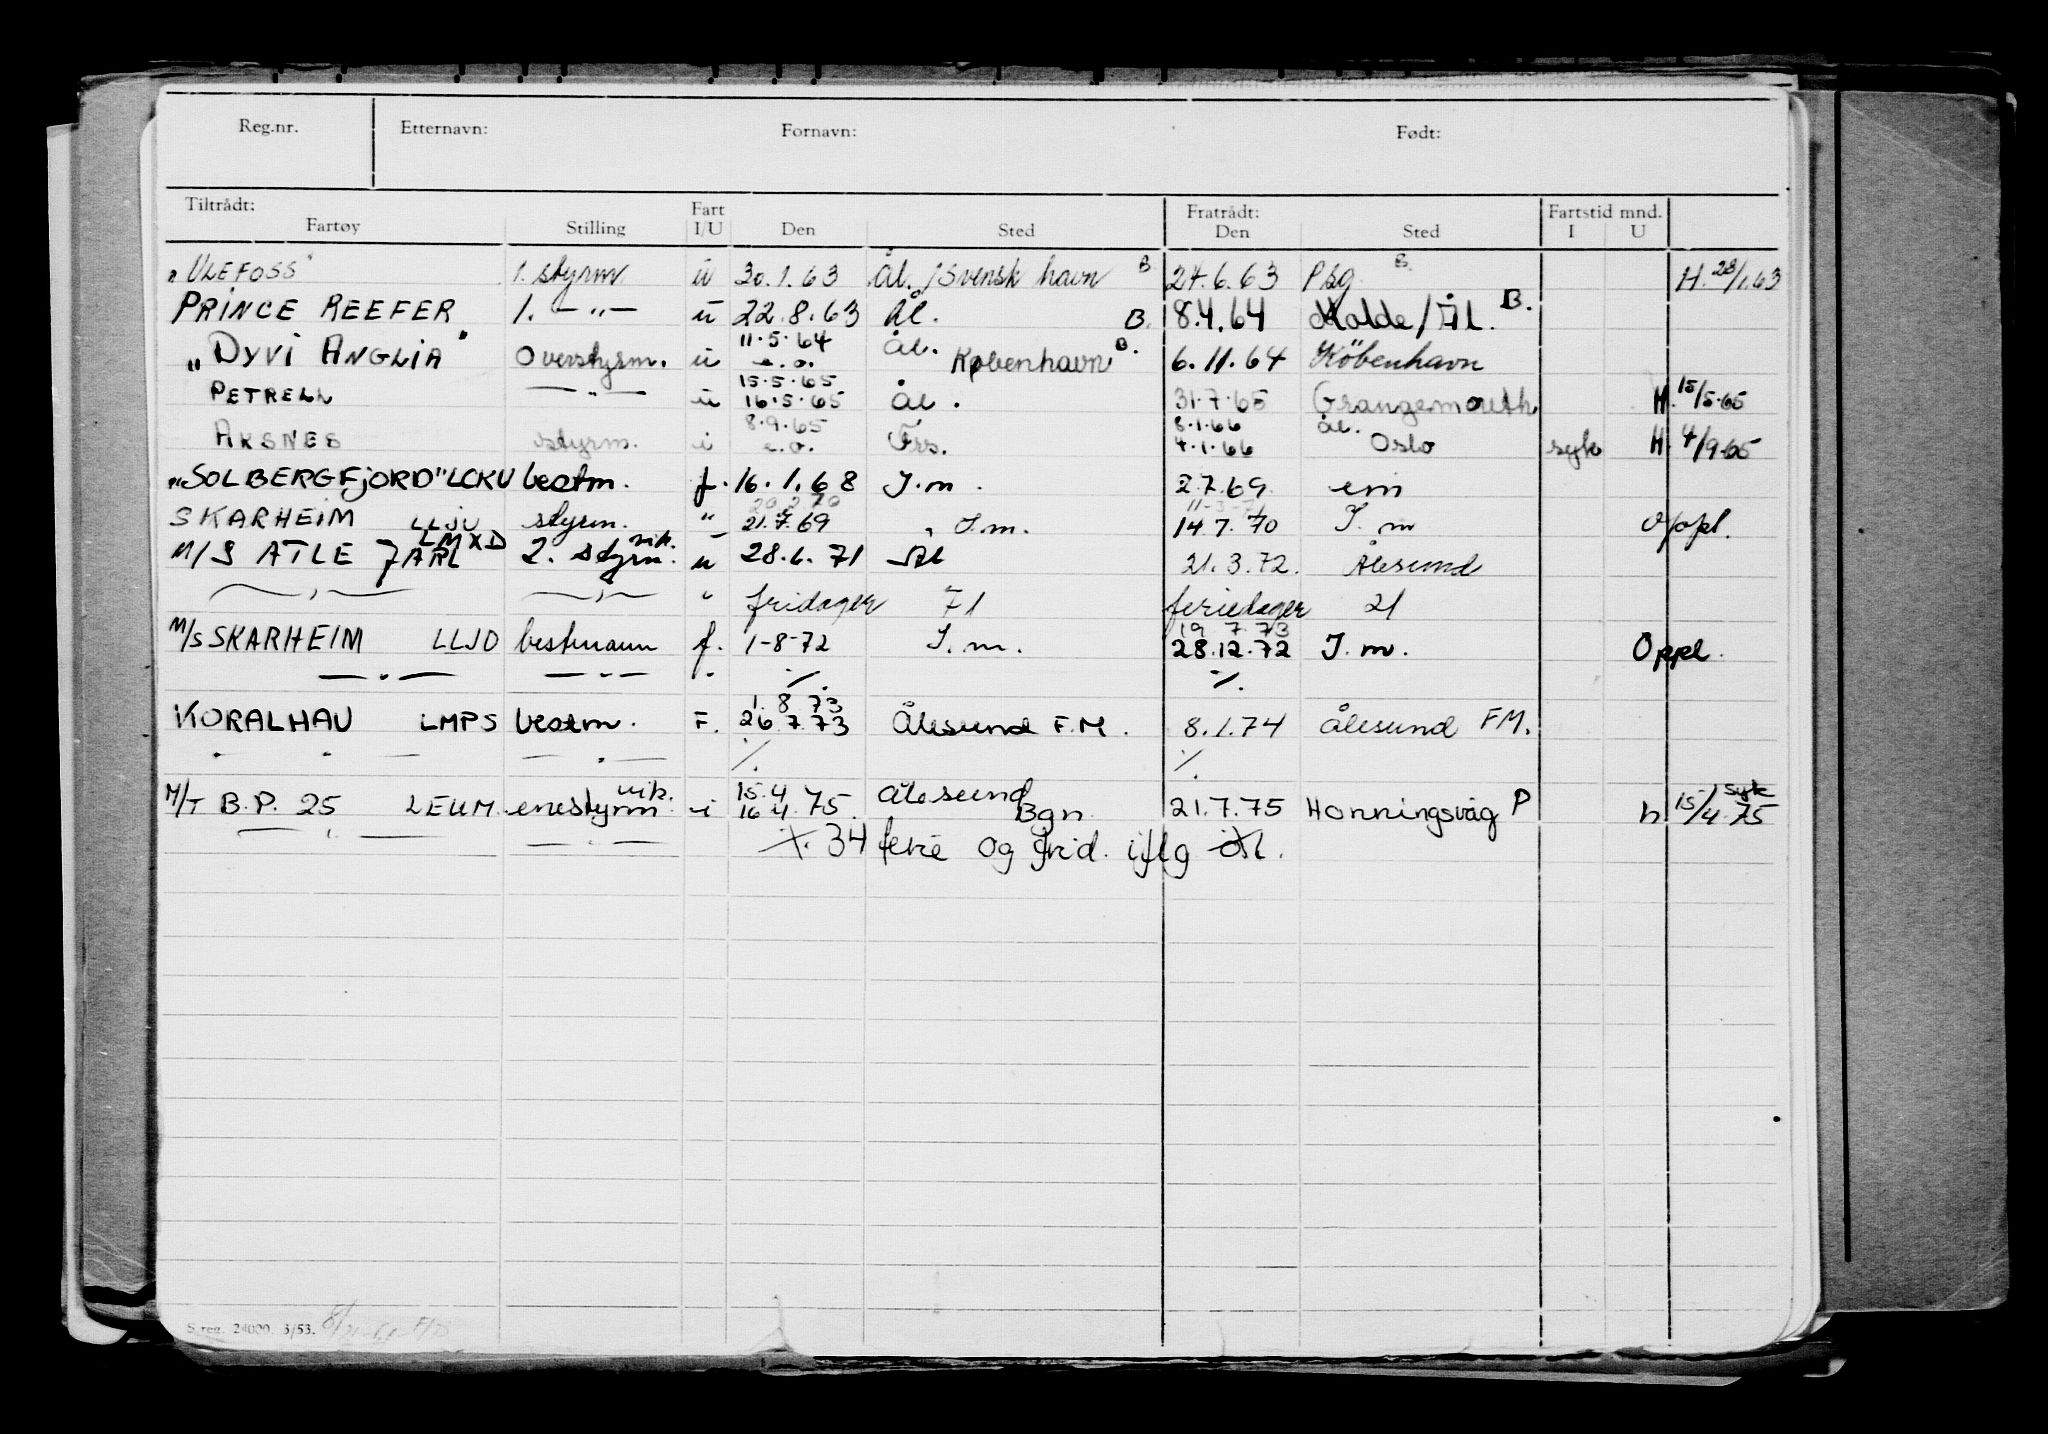 Reg.nr. Etternavn: Fornavn: Født:
Tiltrådt: Fart Fratrådt: Fartstid mnd.
Fartøy Stilling I/U Den Sted Den Sted I U
"ULEFOSS" 1. styrm. u 30.1.63 Ål. /Svensk havn B 24.6.63 Psg. B. H. 28/1.63
PRINCE REEFER 1. -"- u 22.8.63 Ål. B. 8.4.64 Molde/Ål. B.
11.5.64 Ål.
"DYVI ANGLIA" Overstyrm. u e.o. København B. 6.11.64 København
15.5.65
PETRELL -"- u 16.5.65 Ål. 31.7.65 Grangemouth H. 15/5.65
8.9.65 8.1.66 Ål.
AKSNES styrm. i e.o. 4.1.66 Oslo syk H. 4/9.65
"SOLBERGFJORD" LCKU bestm. f. 16.1.68 I.m. 2.7.69 em
20.2.70 11-3-71
SKARHEIM LLJU styrm. " 21.7.69 I.m. 14.7.70 I.m Oppl.
LMXD vik.
M/S ATLE JARL 2. styrm. u 28.6.71 Ål 21.3.72. Ålesund
-"- -"- " fridager 71 feriedager 21
19 7.73
M/S SKARHEIM LLJO bestmann f. 1-8-72 I.m. 28.12.72 I.m. Oppl.
-"- -"- " ./. ./.
1.8.73
KORALHAV LMPS bestm. F. 26.7.73 Ålesund F.M. 8.1.74 Ålesund FM.
" " -"- ./. ./.
vik. 15.4 Ålesund syk
M/T B.P. 25 LEUM. enestyrm i 16.4.75. Bgn. 21.7.75 Honningsvåg P h 15/4.75
-"- -"- +. 34 ferie og frid. iflg
S.reg. 24000. 3/53.